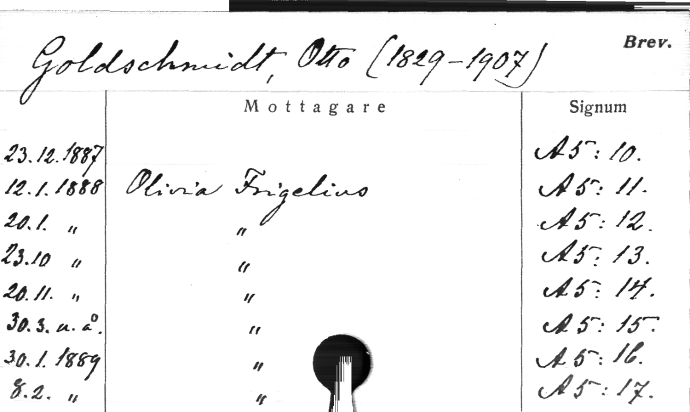 Goldschmidt, Otto (1829-1907) Brev.
Mottagare Signum
23.12.1887 A 5: 10.
12.1.1888 Olivia Frigelius A 5: 11.
20.1. " " A 5: 12.
23.10 " " A 5: 13.
20.11. " " A 5: 14.
30.3. u. å. " A 5: 15.
30.1.1889 " A 5: 16.
8.2. " " A 5: 17.